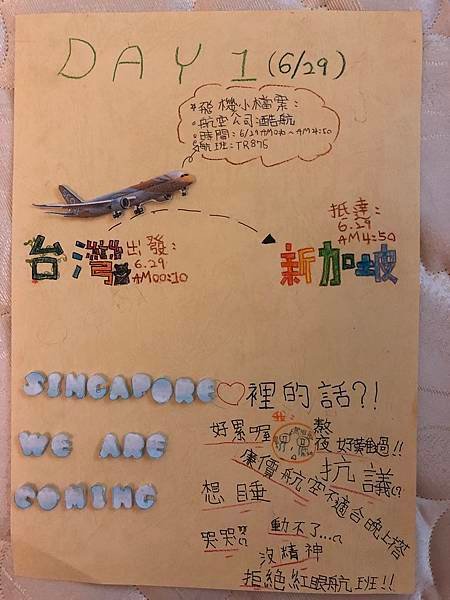 DAY 1 (6/29)
*飛機小檔案:
航空公司:酷航
時間:6/29 AM0:10~AM4:50
航班:TR875
台灣
出發:
6.29
AM00:10
抵達:
6.29
AM4:50
新加坡
SINGAPORE
WE ARE
COMING
裡的話?!
好累喔
熬夜好難過!!
抗議
廉價航空不適合晚上搭
想睡
哭哭
動不了...
沒精神
拒絕紅眼航班!!